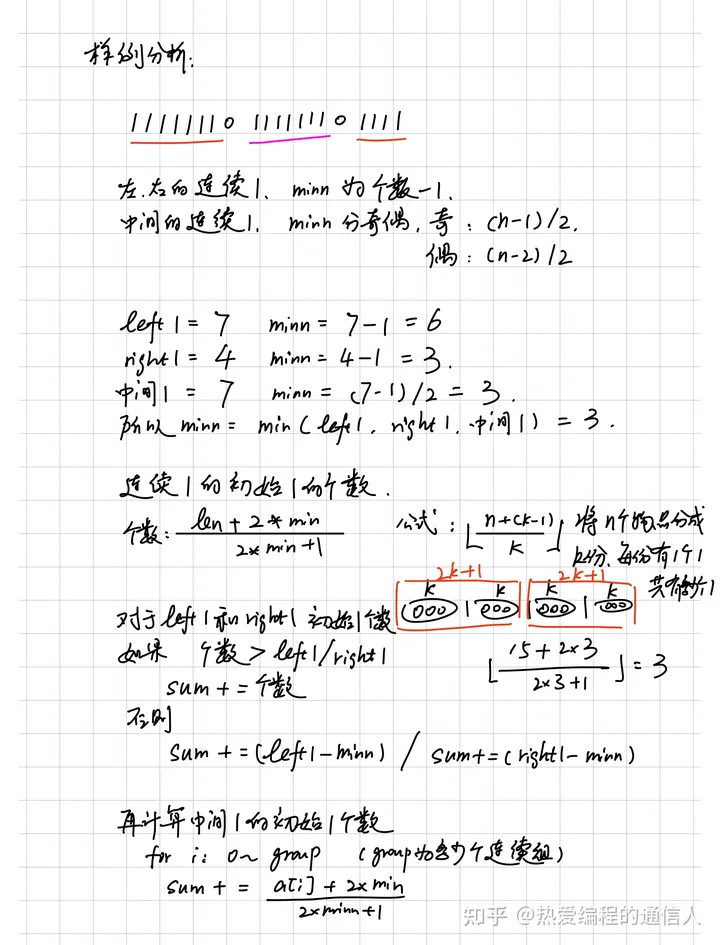 样例分析:
11111110 11111110 1111
左.右的连续1. minn 为个数-1.
中间的连续1. minn 分奇偶, 奇: (n-1)/2.
偶: (n-2)/2
left1 = 7 minn = 7-1 = 6
right1 = 4 minn = 4-1 = 3.
中间1 = 7 minn = (7-1)/2 = 3.
所以 minn = min(left1. right1. 中间1) = 3.
连续1的初始1的个数.
个数: (len + 2*min)/(2*min+1)
公式: ⌊(n+(k-1))/k⌋ 将n个物品分成
k份、每份有1个1
共有多少1
2k+1 2k+1
k k k k
(000) | (000) | (000) | (000)
对于left1和right1初始1个数
如果 个数 > left1/right1
⌊(15+2×3)/(2×3+1)⌋ = 3
sum += 个数
否则
sum += (left1-minn) / sum+=(right1-minn)
再计算中间1的初始1个数
for i: 0~group (group为多少个连续组)
sum += (a[i] + 2×min)/(2×minn+1)
知乎 @热爱编程的通信人